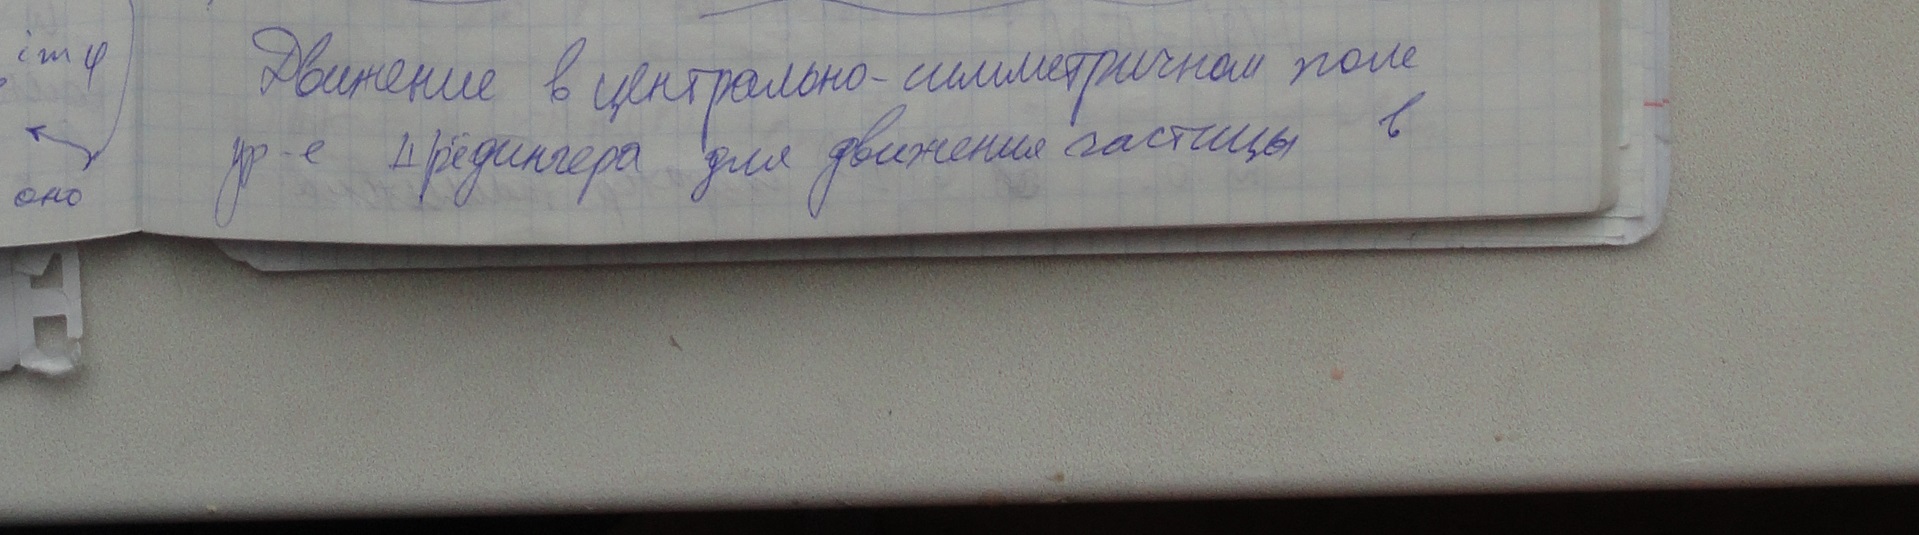 imφ
оно
Движение в центрально-симметричном поле
ур-е Шрёдингера для движения частицы в